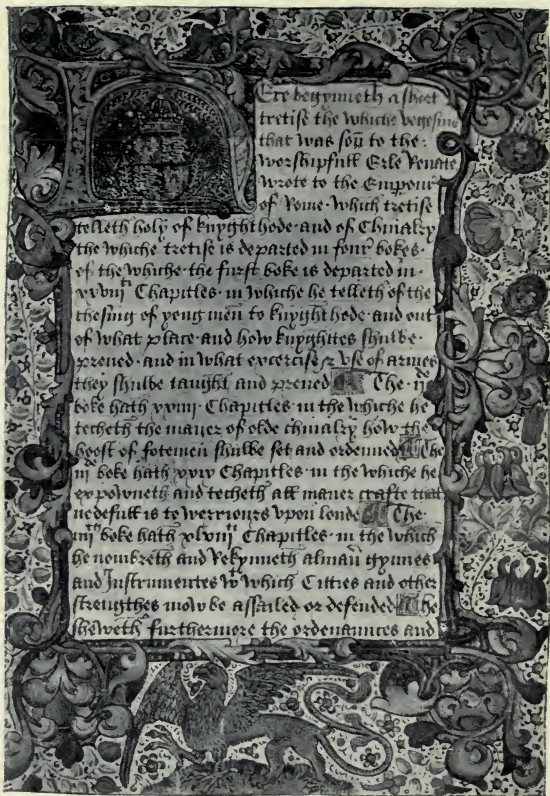 Ere begynneth a short
tretise the whiche vegesius
that was son to the
worshipfull Erle Renate
wrote to the Emperour
of Rome · which tretise
telleth holy of knyghthode · and of Chiualry
the whiche tretise is departed in four bokes ·
of the whiche · the furst boke is departed in ·
xxviij Chapitles · in whiche he telleth of the
chesing of yeng men to knyghthode · and out
of what place · and how knyghtes shulbe ·
preued · and in what excercise & vse of armes
they shulbe taught and preued The · ij
boke hath xxiiij · Chapitles · in the whiche he
techeth the maner of olde chiualry how the
hoost of fotemen shulbe set and ordenned The
iij boke hath xxvj Chapitles · in the whiche he
expowneth and techeth all maner crafte that
nedefull is to werriours vpon londe The ·
iiij boke hath xlviij Chapitles · in the which
he nombreth and Rekynneth alman gynnes
and Instrumentes wt which Citties and other
strengthes mow be assailed or defended he
sheweth furthermore the ordenannces and